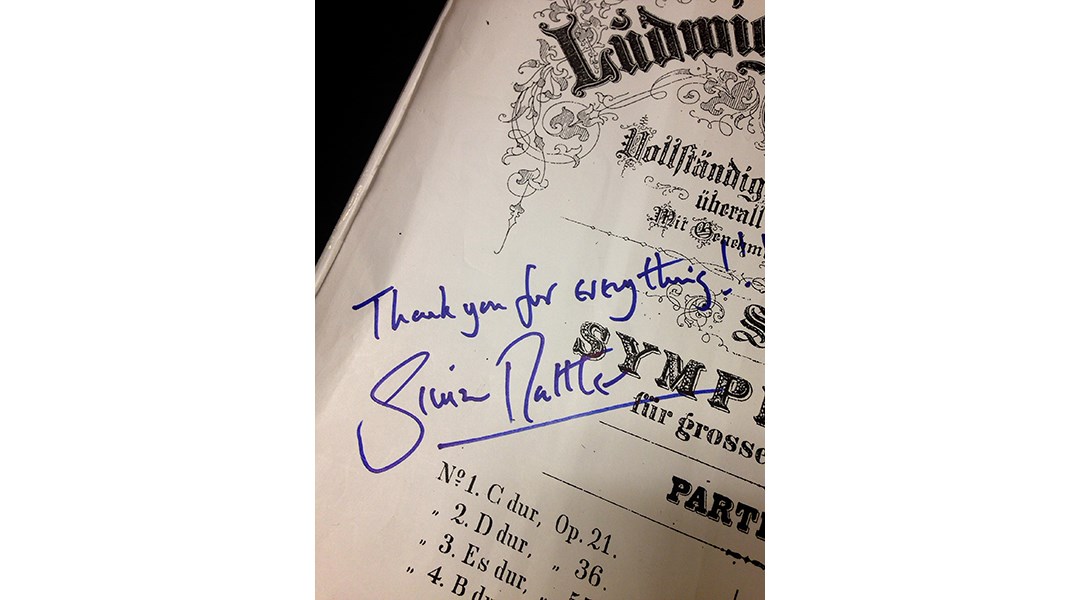 Ludwig
Vollständig
überall
Mit Genehm
Thank you for everything!!
S
Simon Rattle
SYMPH
für grosse
PARTI
No. 1. C dur, Op. 21.
„ 2. D dur, „ 36.
„ 3. Es dur, „ 55
„ 4. B du